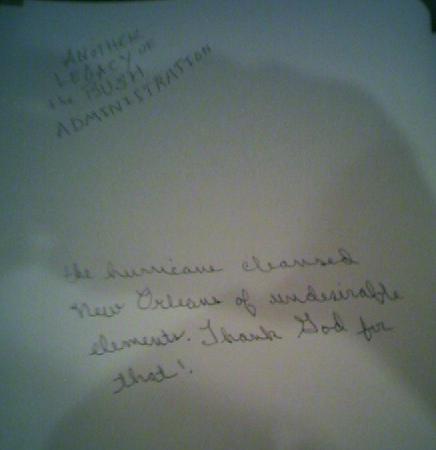 ANOTHER
LEGACY OF
the BUSH
ADMINISTRATION
the hurricane cleansed
New Orleans of undesirable
elements. Thank God for
that!